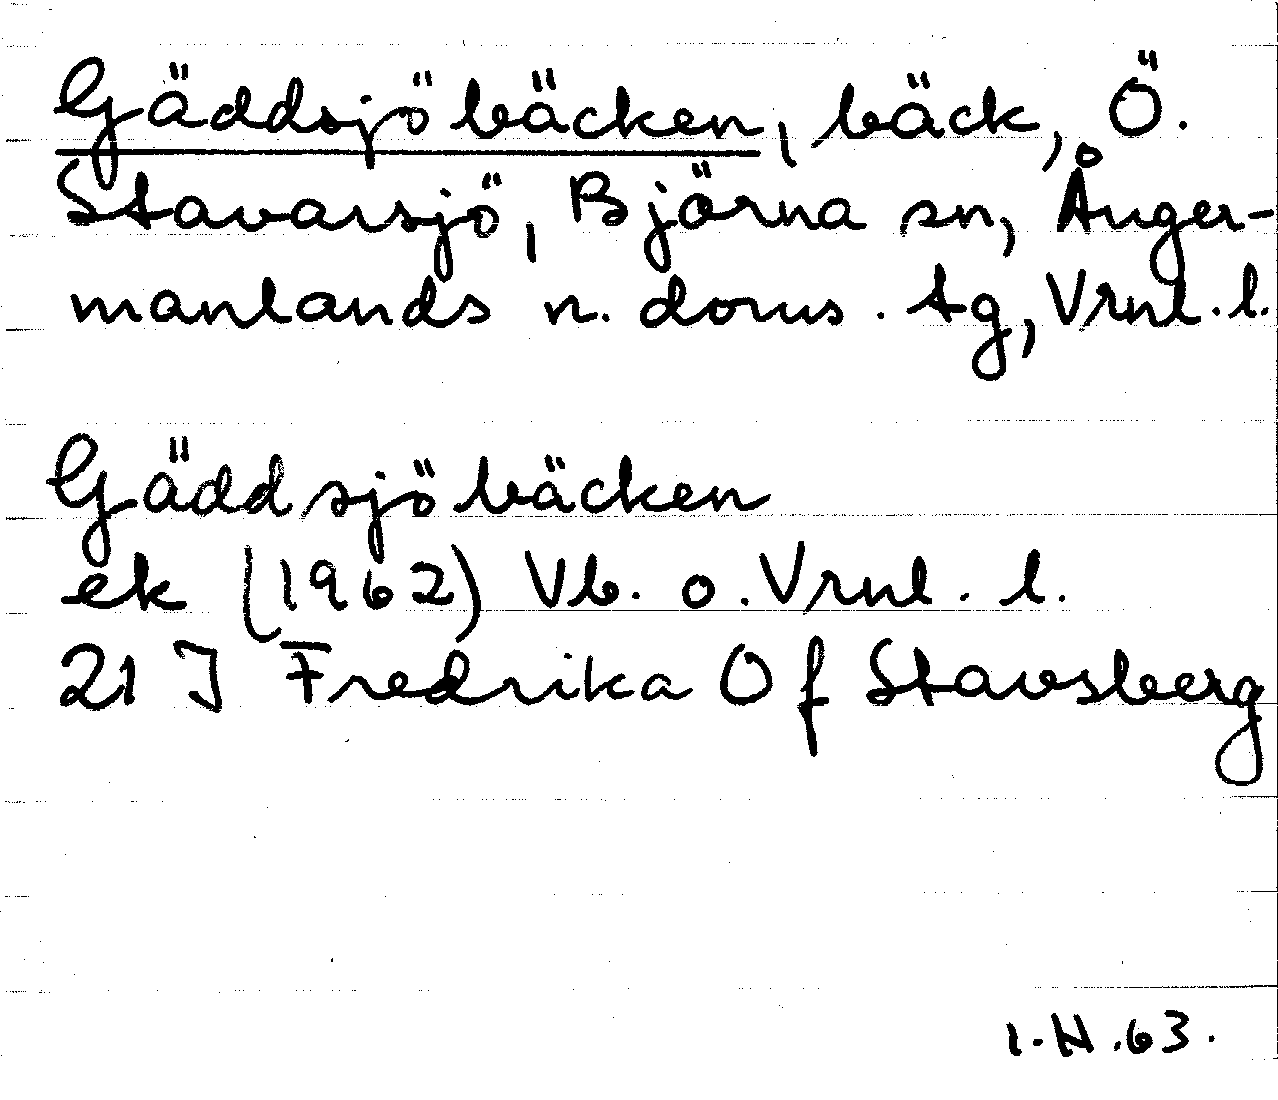 Gäddsjöbäcken, bäck, Ö.
Stavarsjö, Björna sn, Ånger-
manlands n. doms. tg, Vrnl. l.
Gäddsjöbäcken
ek (1962) Vb. o. Vrnl. l.
21 J Fredrika O f Stavsberg
I.H.63.